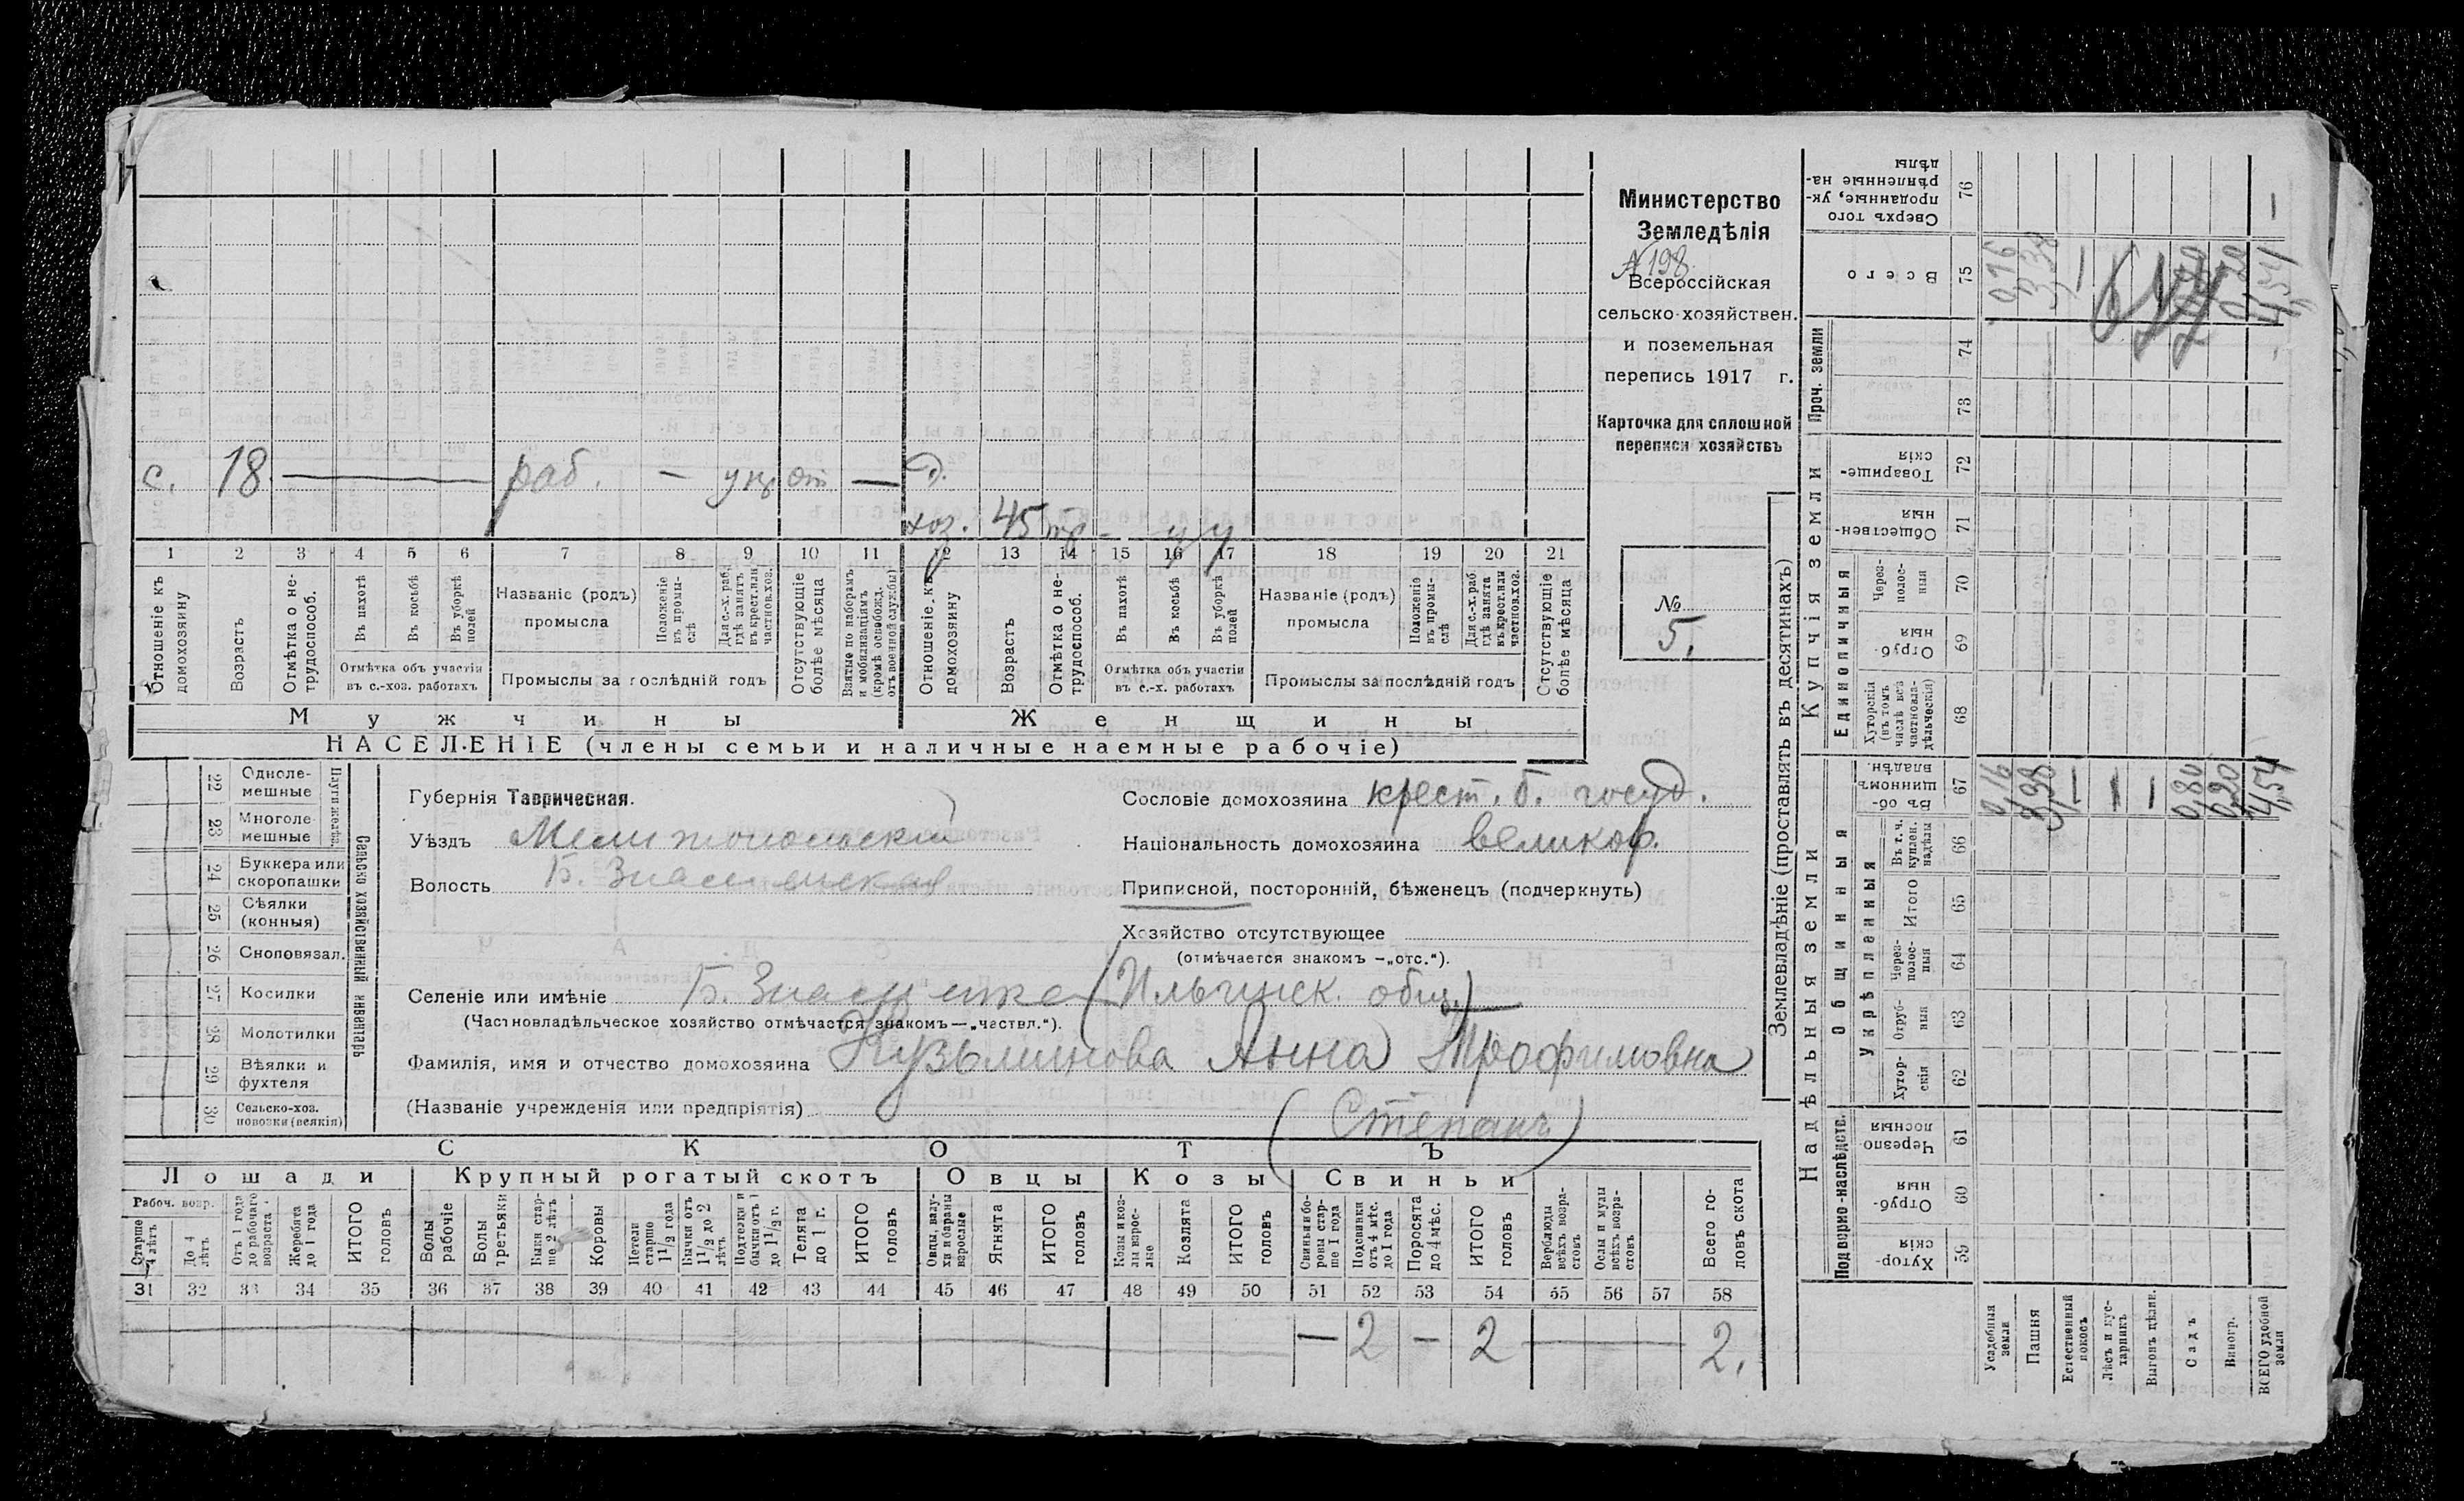 Министерство
Земледѣлія
№ 198.
Всероссійская
сельско-хозяйствен.
и поземельная
перепись 1917 г.
Карточка для сплошной
переписи хозяйствъ
№
5.
с. 18. — раб. — — д.
хоз. 45 — у у
1 2 3 4 5 6 7 8 9 10 11 12 13 14 15 16 17 18 19 20 21
Отношеніе къ домохозяину
Возрастъ
Отмѣтка о не-трудоспособ.
Въ пахотѣ
Въ косьбѣ
Въ уборкѣ полей
Отмѣтка объ участіи
въ с.-хоз. работахъ
Названіе (родъ)
промысла
Положеніе въ промы-слѣ
Для с.-х. раб. гдѣ занятъ въ крест. или частнов. хоз.
Промыслы за послѣдній годъ
Отсутствующіе болѣе мѣсяца
Взятые по наборамъ и мобилизаціямъ (кромѣ освобожд. отъ военной службы)
Отношеніе къ домохозяину
Возрастъ
Отмѣтка о не-трудоспособ.
Въ пахотѣ
Въ косьбѣ
Въ уборкѣ полей
Отмѣтка объ участіи
въ с.-х. работахъ
Названіе (родъ)
промысла
Положеніе въ промы-слѣ
Для с.-х. раб. гдѣ занята въ крест. или частнов. хоз.
Промыслы за послѣдній годъ
Отсутствующіе болѣе мѣсяца
Мужчины
Женщины
НАСЕЛЕНІЕ (члены семьи и наличные наемные рабочіе)
22 Одноле-мешные
23 Многоле-мешные
Плуги желѣз.
24 Буккера или скоропашки
25 Сѣялки (конныя)
26 Сноповязал.
27 Косилки
28 Молотилки
29 Вѣялки и фухтеля
30 Сельско-хоз. повозки (всякія)
Сельско хозяйственный инвентарь
Губернія Таврическая.
Уѣздъ Мелитопольскій
Волость Б. Знаменская
Сословіе домохозяина крест. б. госуд.
Національность домохозяина великор.
Приписной, посторонній, бѣженецъ (подчеркнуть)
Хозяйство отсутствующее
(отмѣчается знакомъ —„отс.“).
Селеніе или имѣніе Б. Знаменка (Ильинск. общ.)
(Частновладѣльческое хозяйство отмѣчается знакомъ—„частвл.“).
Фамилія, имя и отчество домохозяина Кузьминова Анна Трофимовна
(Названіе учрежденія или предпріятія)
(Степанъ)
СКОТЪ
Лошади
Крупный рогатый скотъ
Овцы
Козы
Свиньи
Рабоч. возр.
Старше 4 лѣтъ
До 4 лѣтъ
Отъ 1 года до рабочаго возраста
Жеребята до 1 года
ИТОГО головъ
Волы рабочіе
Волы третьяки
Быки стар-ше 2 лѣтъ
Коровы
Нетели старше 1½ года
Бычки отъ 1½ до 2 лѣтъ
Подтелки и бычки отъ 1 до 1½ г.
Телята до 1 г.
ИТОГО головъ
Овцы, валу-хи и бараны взрослые
Ягнята
ИТОГО головъ
Козы и коз-лы взрос-лые
Козлята
ИТОГО головъ
Свиньи и бо-ровы стар-ше 1 года
Подсвинки отъ 4 мѣс. до 1 года
Поросята до 4 мѣс.
ИТОГО головъ
Верблюды всѣхъ возра-стовъ
Ослы и мулы всѣхъ возра-стовъ
Всего го-ловъ скота
31 32 33 34 35 36 37 38 39 40 41 42 43 44 45 46 47 48 49 50 51 52 53 54 55 56 57 58
— 2 — 2 — 2.
Землевладѣніе (проставлять въ десятинахъ)
Надѣльныя земли
Купчія земли
Проч. земли
Подворно-наслѣдств.
Общинныя
Укрѣпленныя
Единоличныя
Сверхъ того проданные, ук-рѣпленные на-дѣлы 76
Всего 75
74
73
Товарище-скія 72
Обществен-ныя 71
Через-полос-ныя 70
Отруб-ныя 69
Хуторскія (въ томъ числѣ всѣ частновла-дѣльческія) 68
Въ об-щинномъ владѣн. 67
Въ т. ч. куплен. надѣлы 66
Итого 65
Через-полос-ныя 64
Отруб-ныя 63
Хутор-скія 62
Черезпо-лосныя 61
Отруб-ныя 60
Хутор-скія 59
Усадебныя земли
Пашня
Естественный покосъ
Лѣсъ и кус-тарникъ
Выгонъ цѣлин.
Садъ
Виногр.
ВСЕГО удобной земли
0,16
3,38
0,80
0,20
4,54
0,16
3,38
0,20
4,54